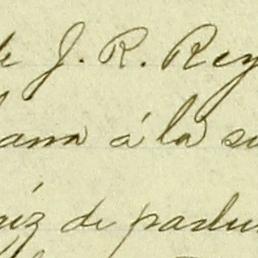 de J. R. Rey
ana á la su
iz de padu